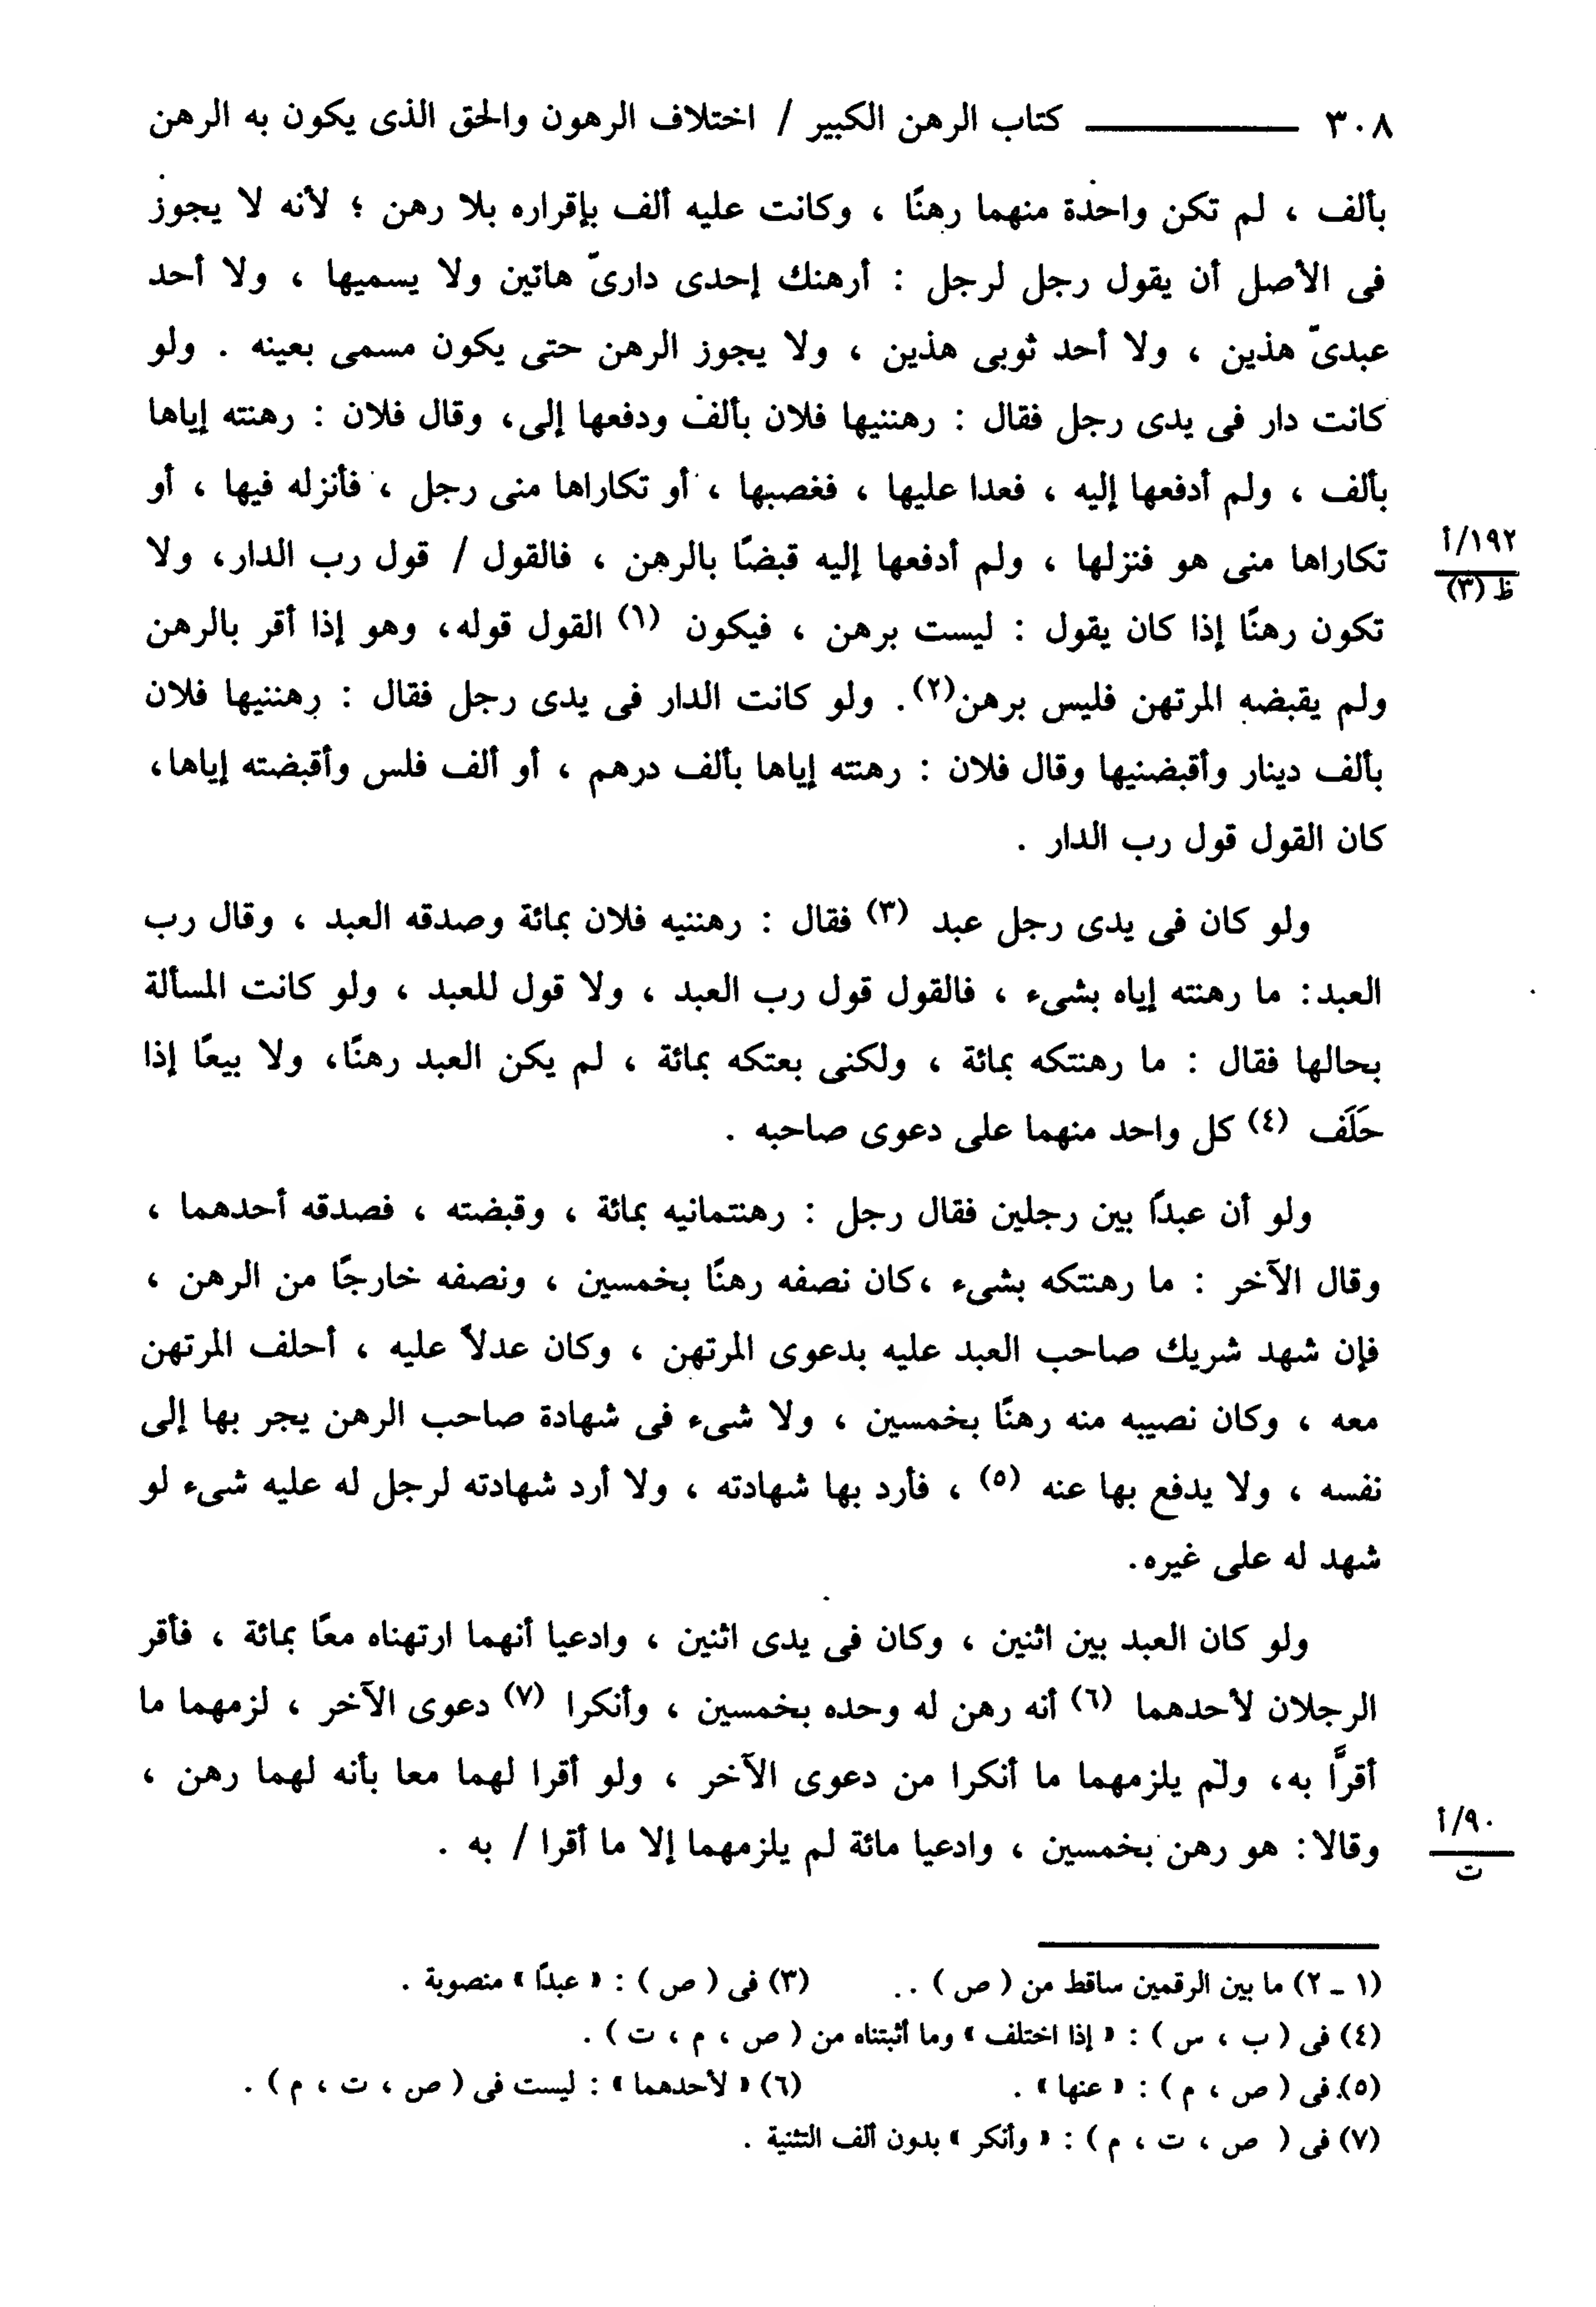 ٣٠٨ ـــــــــــ كتاب الرهن الكبير / اختلاف الرهون والحق الذى يكون به الرهن
بألف ، لم تكن واحدة منهما رهنًا ، وكانت عليه ألف بإقراره بلا رهن ؛ لأنه لا يجوز
فى الأصل أن يقول رجل لرجل : أرهنك إحدى دارىّ هاتين ولا يسميها ، ولا أحد
عبدىّ هذين ، ولا أحد ثوبى هذين ، ولا يجوز الرهن حتى يكون مسمى بعينه . ولو
كانت دار فى يدى رجل فقال : رهننيها فلان بألف ودفعها إلى، وقال فلان : رهنته إياها
بألف ، ولم أدفعها إليه ، فعدا عليها ، فغصبها ، أو تكاراها منى رجل ، فأنزله فيها ، أو
تكاراها منى هو فنزلها ، ولم أدفعها إليه قبضًا بالرهن ، فالقول / قول رب الدار، ولا
١٩٢/أ
ظ (٣)
تكون رهنًا إذا كان يقول : ليست برهن ، فيكون (١) القول قوله، وهو إذا أقر بالرهن
ولم يقبضه المرتهن فليس برهن(٢). ولو كانت الدار فى يدى رجل فقال : رهننيها فلان
بألف دينار وأقبضنيها وقال فلان : رهنته إياها بألف درهم ، أو ألف فلس وأقبضته إياها،
كان القول قول رب الدار .
ولو كان فى يدى رجل عبد (٣) فقال : رهننيه فلان بمائة وصدقه العبد ، وقال رب
العبد: ما رهنته إياه بشىء ، فالقول قول رب العبد ، ولا قول للعبد ، ولو كانت المسألة
بحالها فقال : ما رهنتكه بمائة ، ولكنى بعتكه بمائة ، لم يكن العبد رهنًا، ولا بيعًا إذا
حَلَف (٤) كل واحد منهما على دعوى صاحبه .
ولو أن عبدًا بين رجلين فقال رجل : رهنتمانيه بمائة ، وقبضته ، فصدقه أحدهما ،
وقال الآخر : ما رهنتكه بشىء ،كان نصفه رهنًا بخمسين ، ونصفه خارجًا من الرهن ،
فإن شهد شريك صاحب العبد عليه بدعوى المرتهن ، وكان عدلاً عليه ، أحلف المرتهن
معه ، وكان نصيبه منه رهنًا بخمسين ، ولا شىء فى شهادة صاحب الرهن يجر بها إلى
نفسه ، ولا يدفع بها عنه (٥) ، فأرد بها شهادته ، ولا أرد شهادته لرجل له عليه شىء لو
شهد له على غيره.
ولو كان العبد بين اثنين ، وكان فى يدى اثنين ، وادعيا أنهما ارتهناه معًا بمائة ، فأقر
الرجلان لأحدهما (٦) أنه رهن له وحده بخمسين ، وأنكرا (٧) دعوى الآخر ، لزمهما ما
أقرَّا به، ولم يلزمهما ما أنكرا من دعوى الآخر ، ولو أقرا لهما معا بأنه لهما رهن ،
وقالا: هو رهن بخمسين ، وادعيا مائة لم يلزمهما إلا ما أقرا / به .
٩٠/أ
ت
(١ ـ ٢) ما بين الرقمين ساقط من ( ص ) .. (٣) فى ( ص ) : « عبدًا » منصوبة .
(٤) فى ( ب ، س ) : « إذا اختلف » وما أثبتناه من ( ص ، م ، ت ) .
(٥) فى ( ص ، م ) : « عنها » . (٦) « لأحدهما » : ليست فى ( ص ، ت ، م ) .
(٧) فى ( ص ، ت ، م ) : « وأنكر » بدون ألف التثنية .